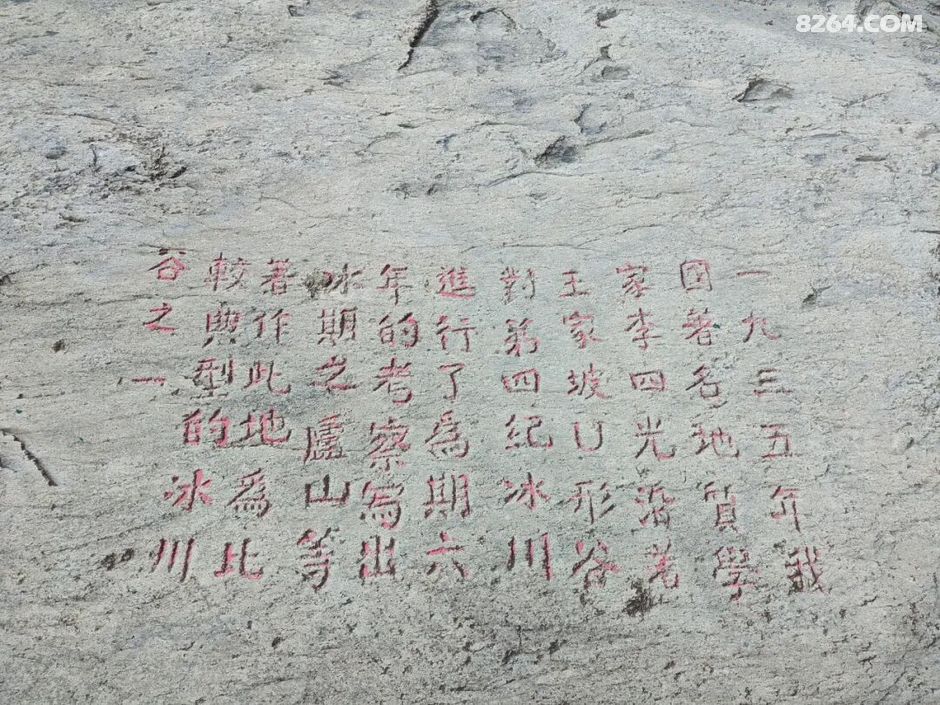 8264.COM
一九三五年我
国著名地質學
家李四光沿着
王家坡U形谷
對第四紀冰川
進行了為期六
年的考察寫出
冰期之廬山等
著作此地為比
較典型的冰川
谷之一